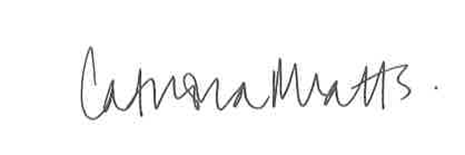 Catriona Watts.